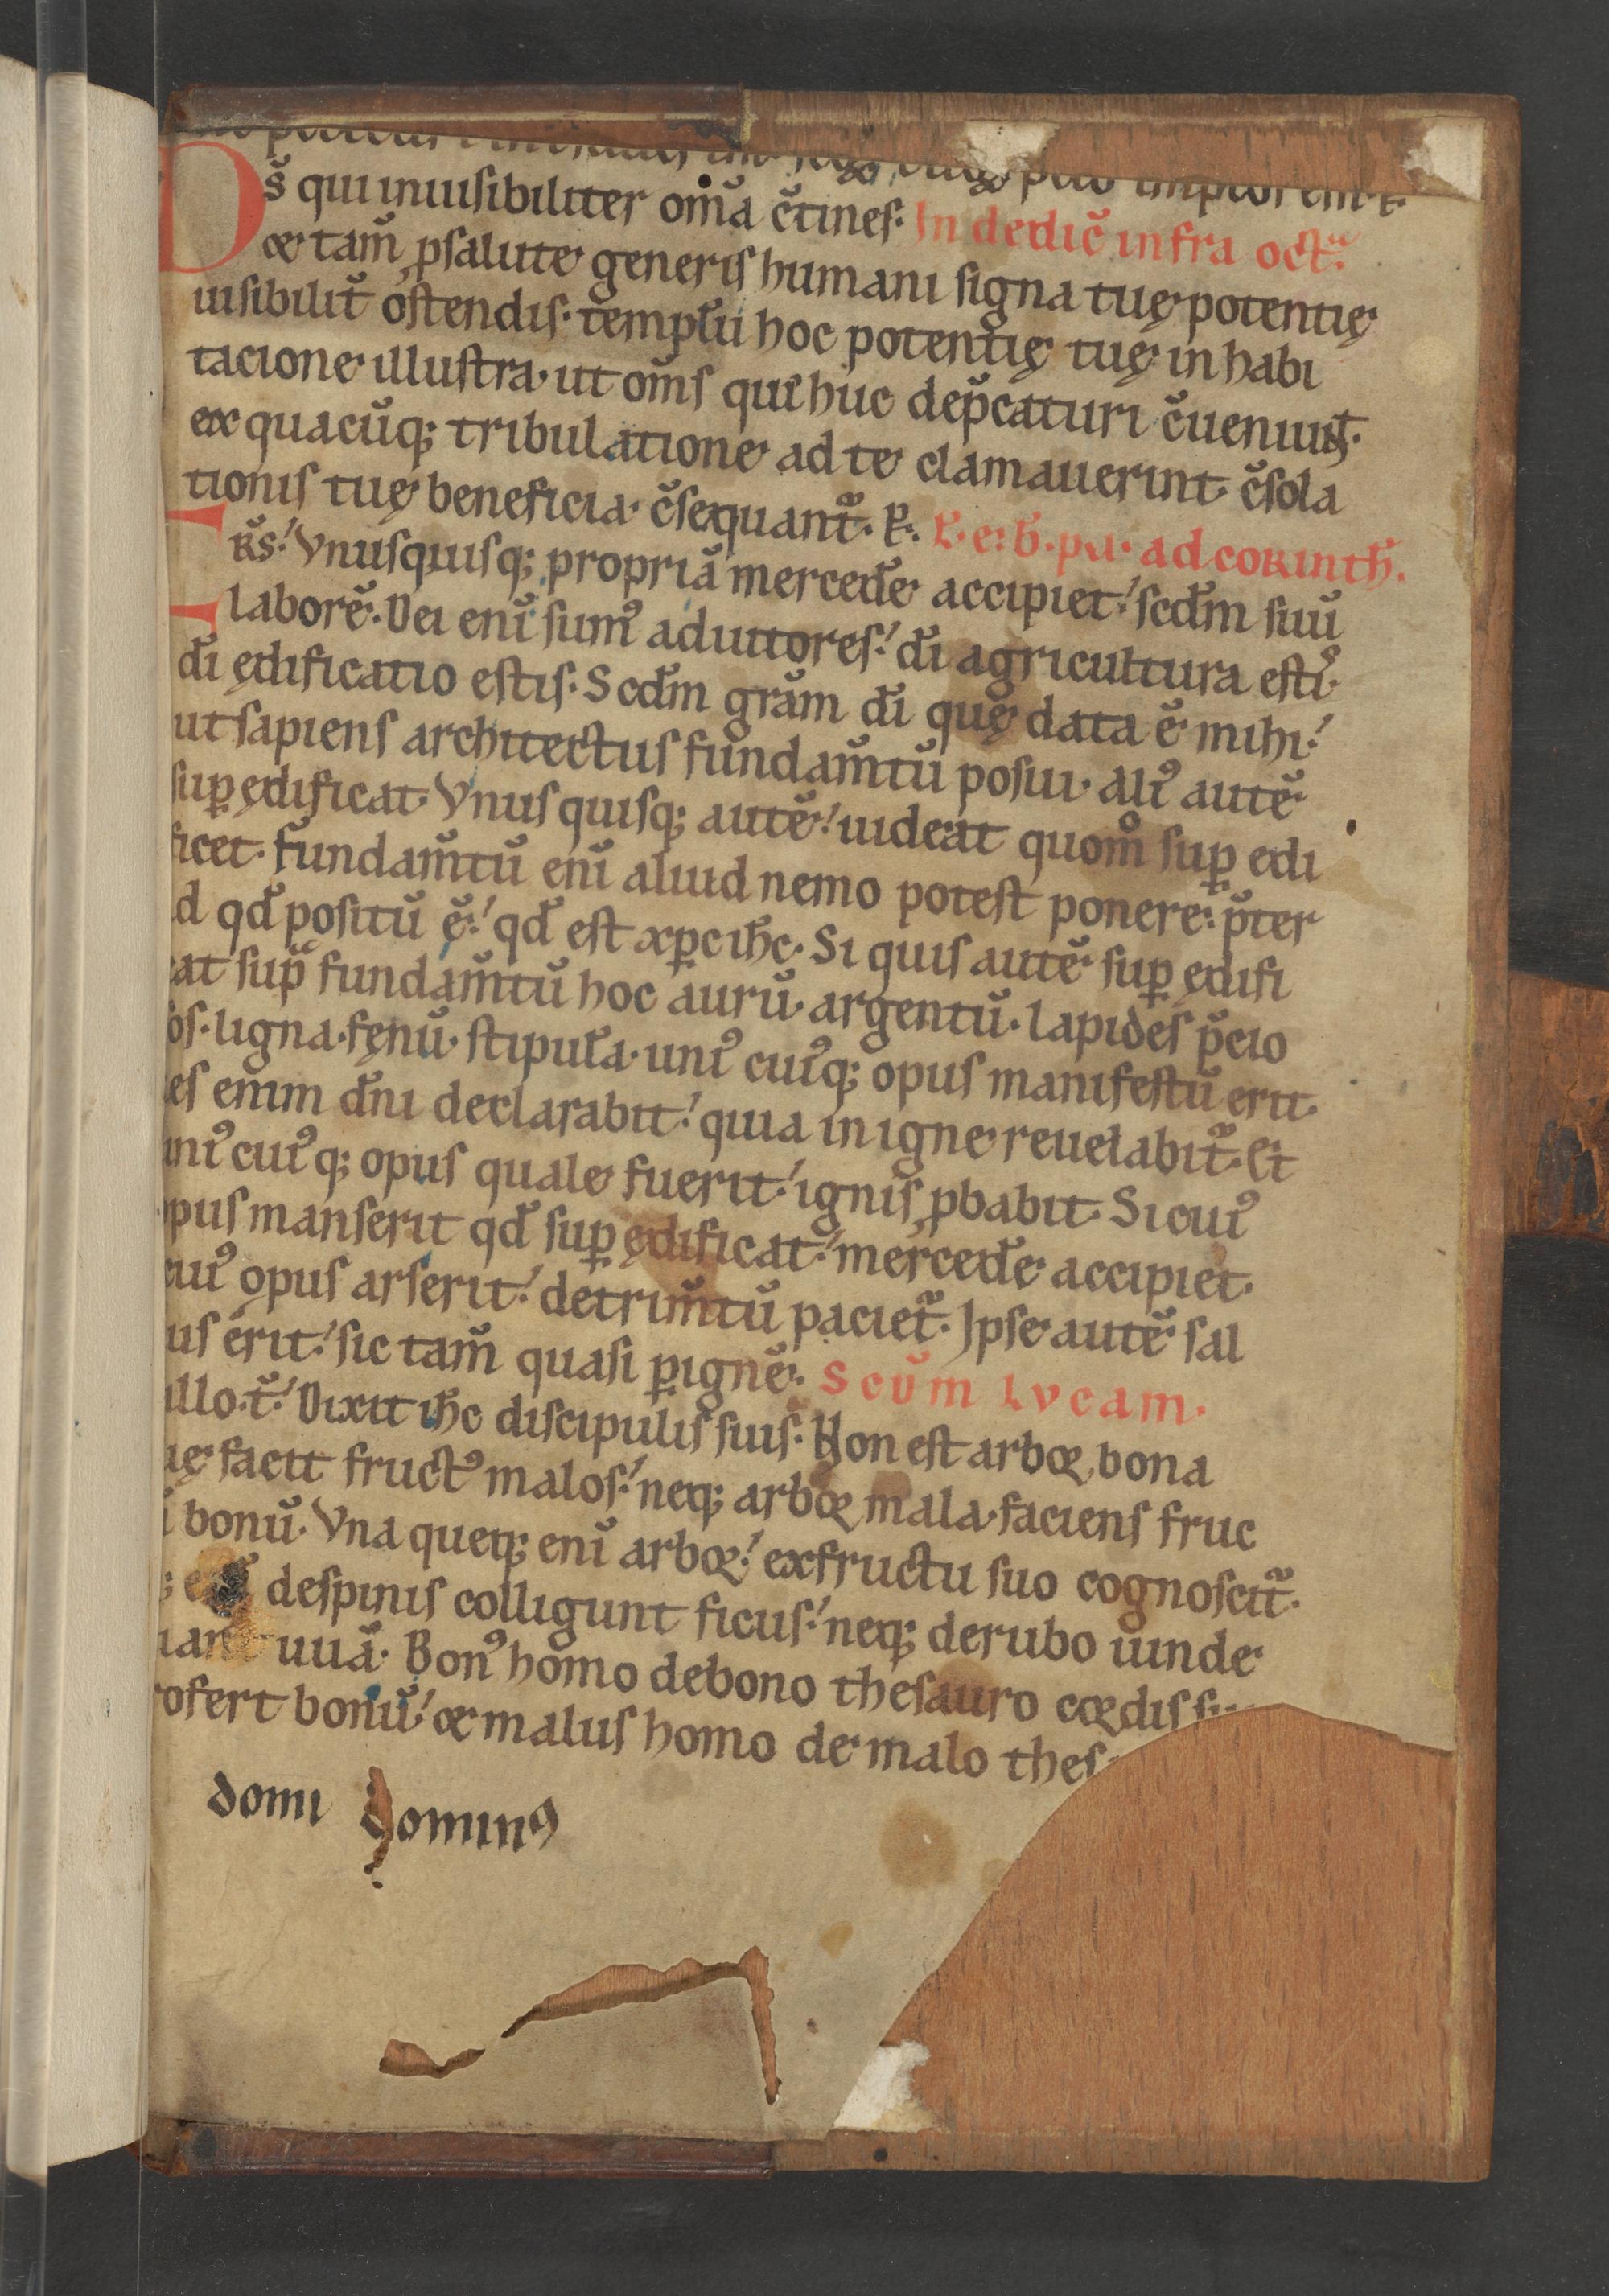 Ds̄ qui inuisibiliter om̄a c̄tines. In dedic̄ infra oct̄.
& tam̄ ꝓ salute generis humani signa tuę potentię
uisibilit̄ ostendis. templū hoc potentię tuę in habi
tacione illustra. ut om̄s qui huc dep̄caturi c̄ueniunt.
ex quacūq; tribulatione ad te clamauerint. c̄sola
tionis tuę beneficia c̄sequant̄. P. L. e. b. pau. ad corinth̄.
Fr̄s. Vnusquisq; propriā mercedē accipiet. scd̄m suū
laborē. Dei enī sumꝰ adiutores. dī agricultura estiꝰ.
dī ędificatio estis. Scd̄m grām dī quę data ē mihi.
ut sapiens architectus fundam̄tū posui. Aliꝰ autē
suꝑ ędificat. Vnus quisq; autē. uideat quom̊ suꝑ edi
ficet. fundam̄tū enī aliud nemo potest ponere. p̄ter
id qd̄ positū ē. qd̄ est xp̄c ih̄c. Si quis autē suꝑ ędifi
cat sup̄ fundam̄tū hoc aurū. argentū. lapides p̄cio
sos. ligna. fęnū. stipulā. uniꝰ cuiꝰq; opus manifestū erit.
es enim dn̄i declarabit. quia in igne reuelabit̄. Et
uniꝰ cuiꝰq; opus quale fuerit. ignis ꝓbabit. Si cuiꝰ
opus manserit qd̄ suꝑ ędificat. mercedē accipiet.
cuiꝰ opus arserit. detrim̄tū paciet̄. Ipse autē sal
us erit. sic tam̄ quasi ꝑ ignē. Scūm lvcam.
illo. t̄. Dixit ih̄c discipulis suis. Non est arbor bona
uę facit fructꝰ malos. neq; arbor mala. faciens fruc
bonū. Vna queq; enī arbor. ex fructu suo cognoscit̄.
de spinis colligunt ficus. neq; de rubo uinde
uuā. Bonꝰ homo de bono thesauro cordis su
ofert bonū. & malus homo de malo thes
domi dominꝰ